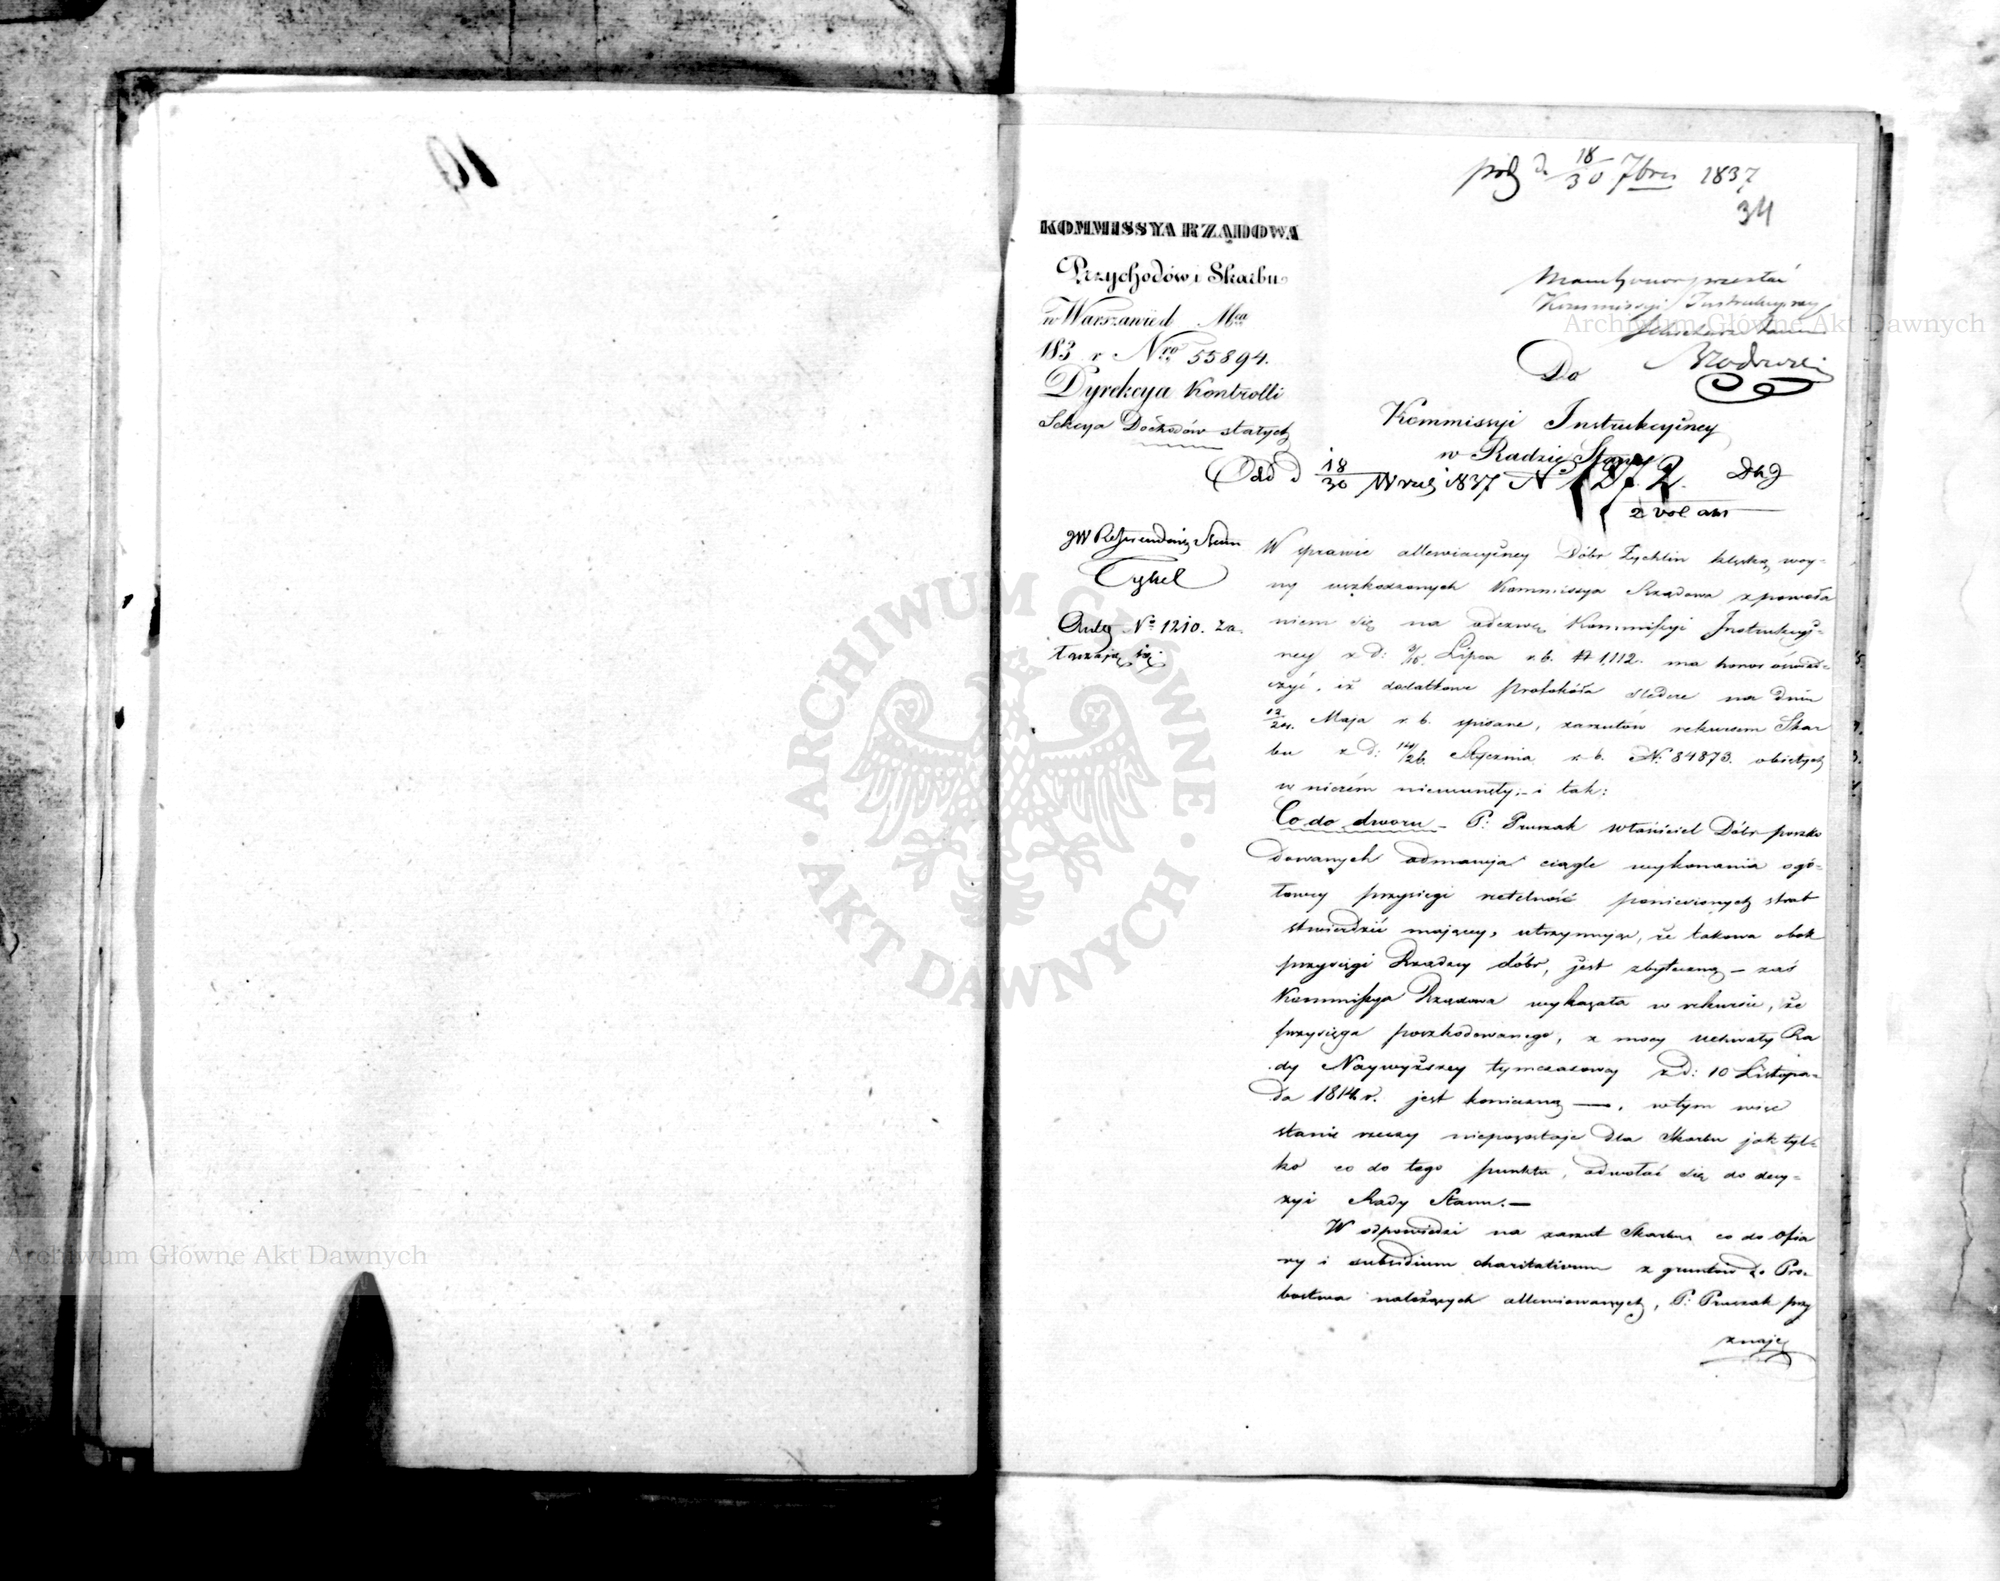 pols d. 18/30 7bris 1837
34
KOMMISSYA RZĄDOWA
Przychodów i Skarbu
w Warszawie d Mca
183 r Nro 55894.
Dyrekcya Kontrolli
Sekcya Dochodów stałych
przesłać
Kommissyi Instrukcyjney
Do
Kommissyi Instrukcyiney
w Radzie Stanu
Odd d 18/30 Wrześ 1837 N 1872.
2 vol akt
JW Referendarz Stanu
Cyhel
Akta No 1210. za
łączają się.
W sprawie allewiacyiney Dóbr Żychlin klęską woy-
ny uszkodzonych Kommissya Rządowa z powoła
niem się na odezwę Kommissyi Instrukcyi-
ney z d: Lipca r. b. N 1,112. ma honor oświad-
czyć, iż dodatkowe protokóła śledcze na dniu
12/24. Maja r. b. spisane, zarzutów rekursem Skar
bu z d: 14/26. Stycznia r. b. N: 84873. obiętych
w niczém nieusunęły; - i tak:
Co do dworu - P: Pruszak właściciel Dóbr poszko
dowanych odmawia ciągle wykonania ogó-
łowey przysięgi rzetelność poniesionych strat
stwierdzić maiącey, utrzymując, że takowa obok
przysięgi Rządcy dóbr, jest zbyteczną - zaś
Kommissya Rządowa wykazała w rekursie, że
przysięga poszkodowanego, z mocy uchwały Ra
dy Naywyższey tymczasowey z d: 10 Listopa-
da 1814 r. jest konieczną —, w tym więc
stanie rzeczy niepozostaje dla Skarbu jak tyl-
ko co do tego punktu, odwołać się do decy-
zyi Rady Stanu. —
W odpowiedzi na zarzut Skarbu co do ofia
ry i subsidium charitativum z gruntów do Pro-
bostwa należących allewiowanych, P: Pruszak przy
znaje
Archiwum Główne Akt Dawnych
Archiwum Główne Akt Dawnych
ARCHIWUM GŁÓWNE AKT DAWNYCH